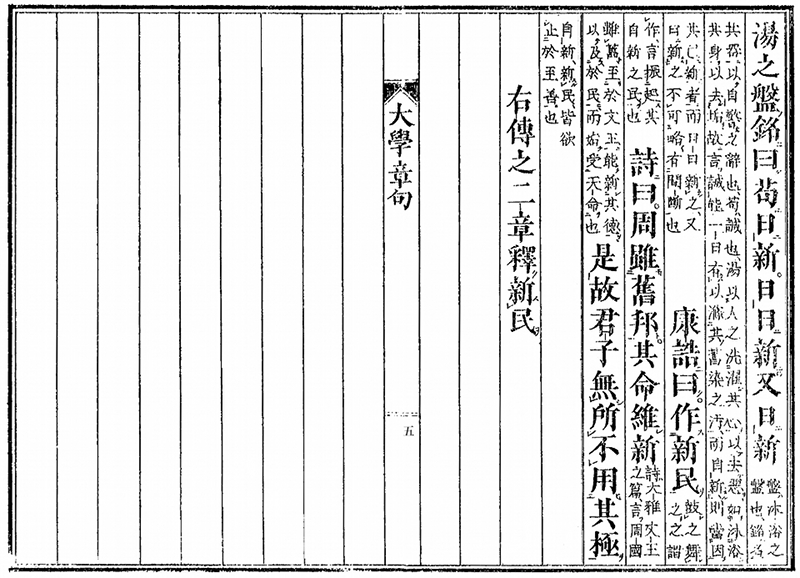 湯之盤銘曰苟日新日日新又日新
盤沐浴之
盤也銘名
其器以自警之辭也苟誠也湯以人之洗濯其心以去惡如沐浴
其身以去垢故言誠能一日有以滌其舊染之汙而自新則當因
其已新者而日日新之又
日新之不可略有間斷也
康誥曰作新民
鼓之舞
之之謂
作言振起其
自新之民也
詩曰周雖舊邦其命維新
詩大雅文王
之篇言周國
雖舊至於文王能新其德
以及於民而始受天命也
是故君子無所不用其極
自新新民皆欲
止於至善也
右傳之二章釋新民
大學章句
五